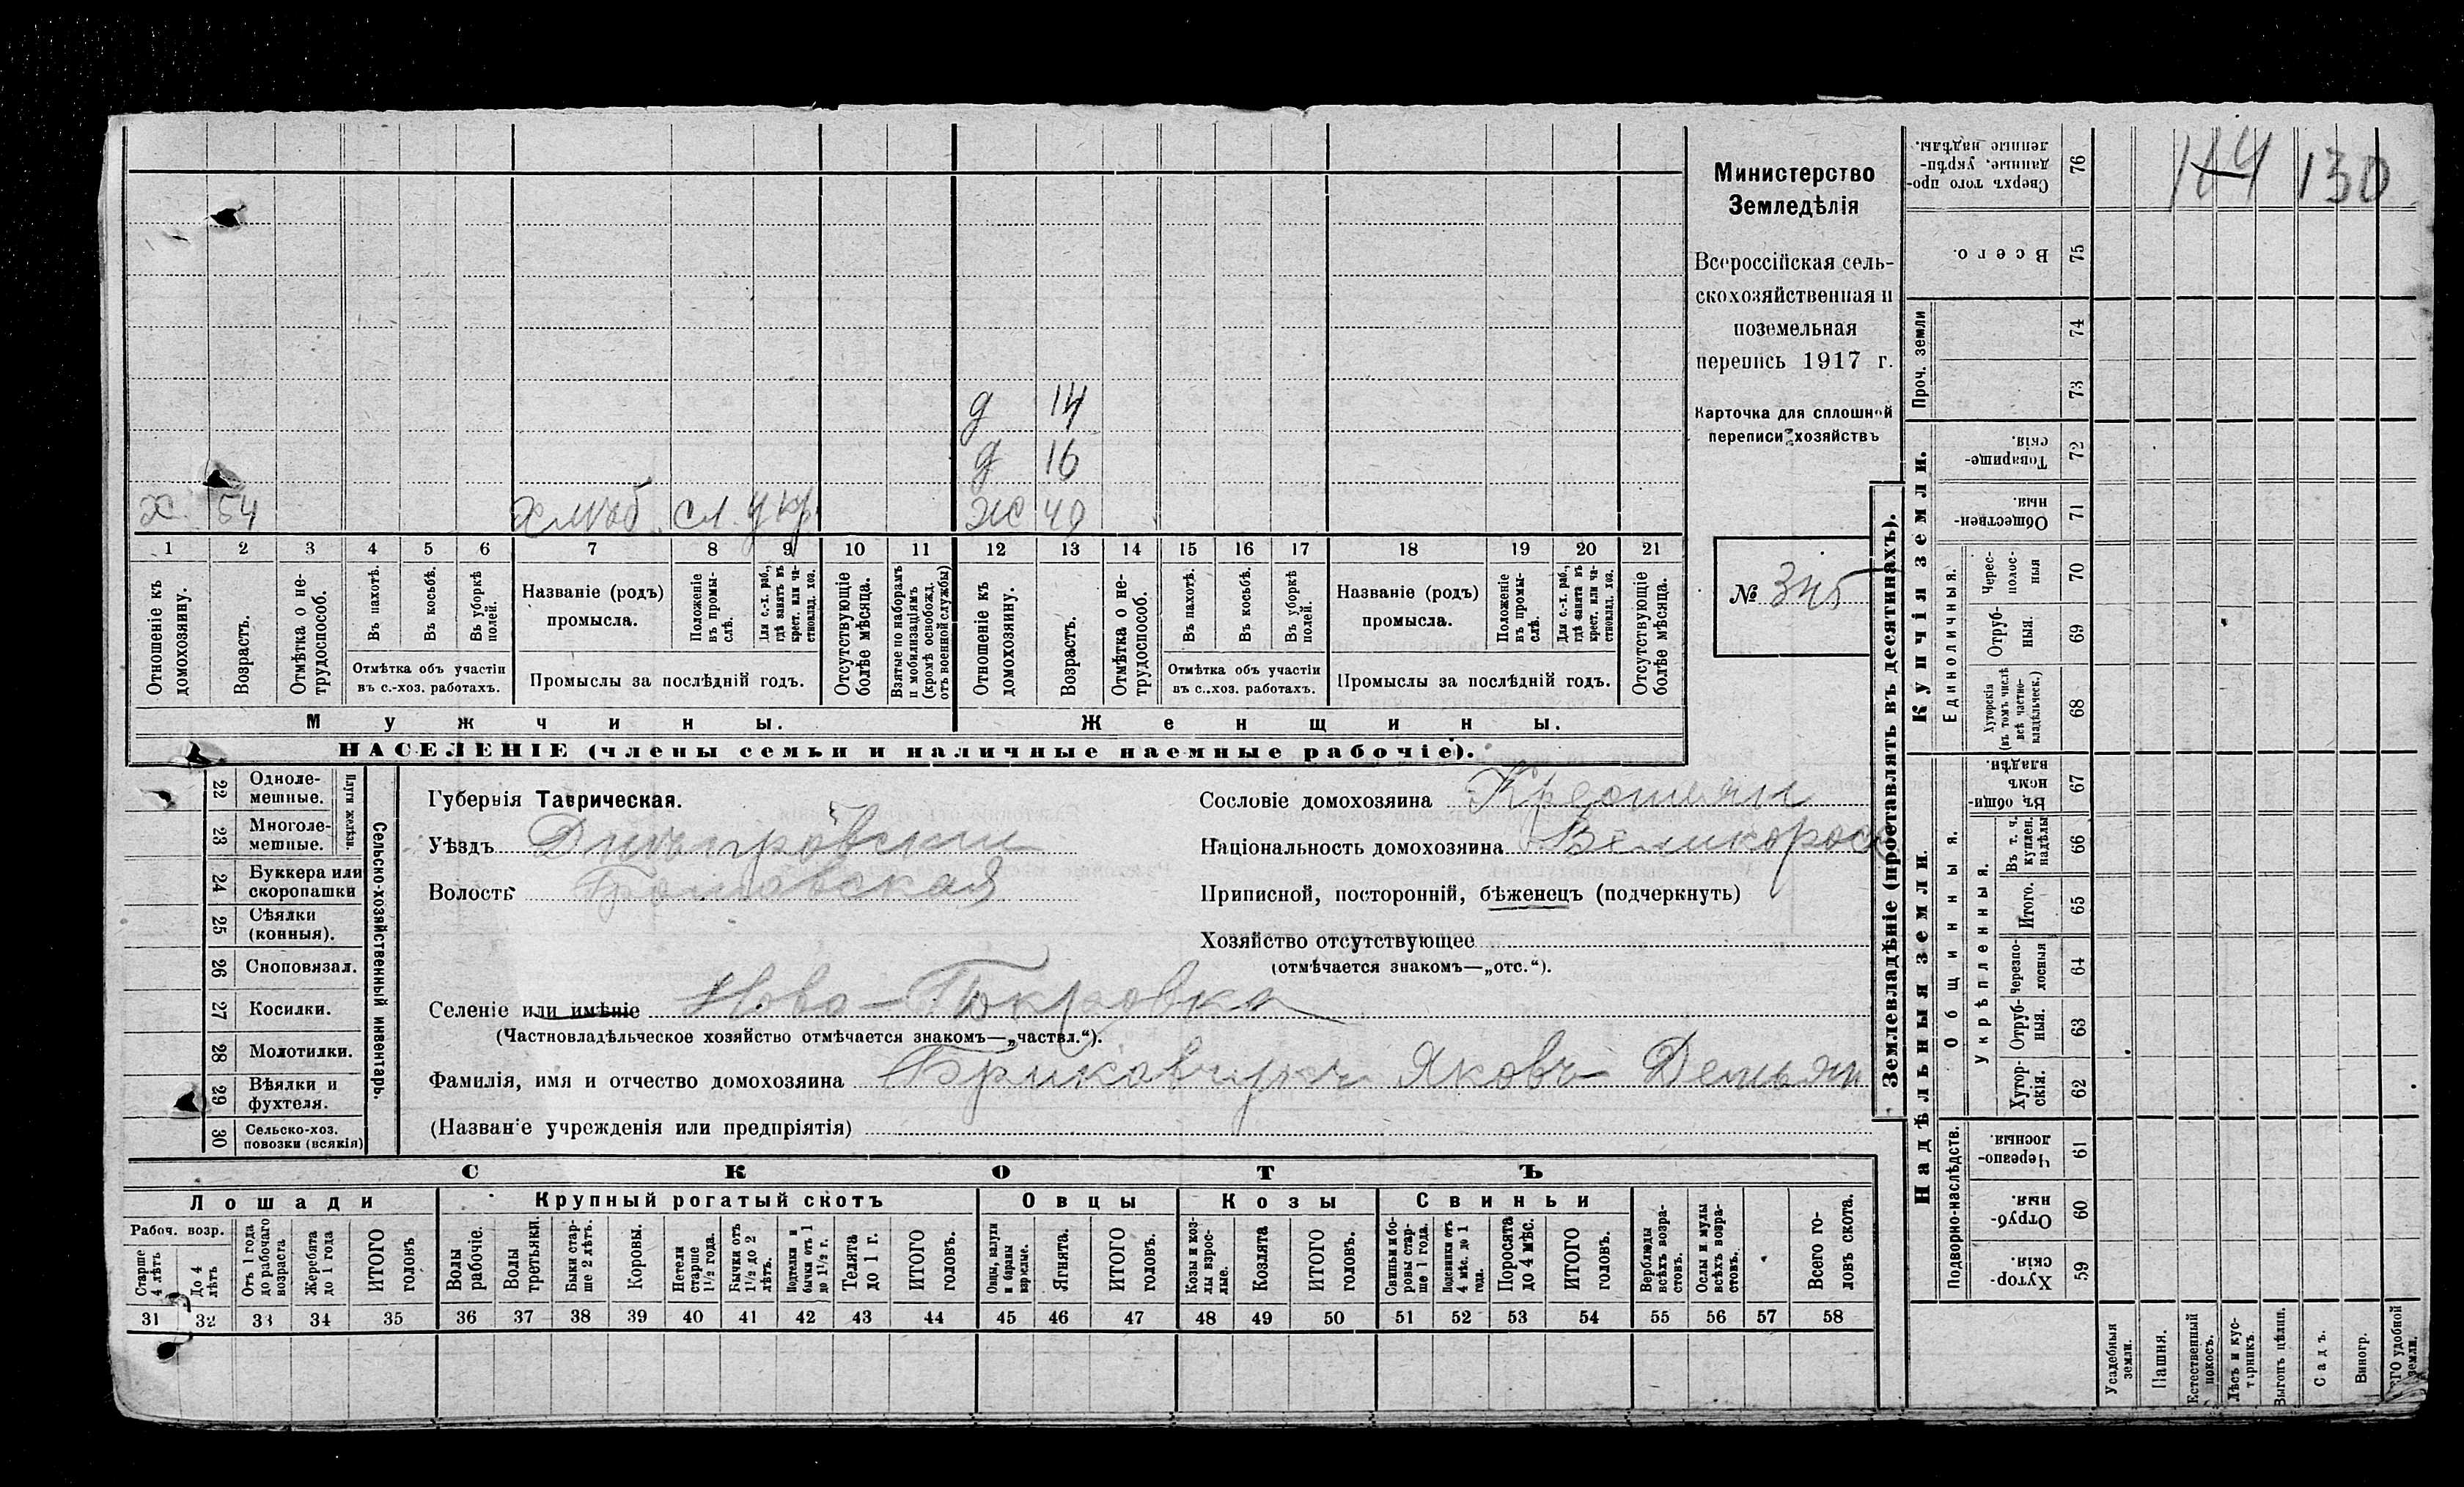 114 130
Министерство
Земледѣлія
Всероссійская сель-
скохозяйственная и
поземельная
перепись 1917 г.
Карточка для сплошной
переписи хозяйствъ
№ 345
д 14
д 16
х. 54 хлѣб. сл. у кр. ж 40
1 2 3 4 5 6 7 8 9 10 11 12 13 14 15 16 17 18 19 20 21
Отношеніе къ домохозяину.
Возрастъ.
Отмѣтка о не-трудоспособ.
Въ пахотѣ.
Въ косьбѣ.
Въ уборкѣ полей.
Отмѣтка объ участіи
въ с.-хоз. работахъ.
Названіе (родъ)
промысла.
Положеніе въ промы-слѣ.
Для с.-х. раб., гдѣ занятъ въ крест. или ча-ствовлад. хоз.
Промыслы за послѣдній годъ.
Отсутствующіе болѣе мѣсяца.
Взятые по наборамъ и мобилизаціямъ (кромѣ освобожд. отъ военной службы)
Отношеніе къ домохозяину.
Возрастъ.
Отмѣтка о не-трудоспособ.
Въ пахотѣ.
Въ косьбѣ.
Въ уборкѣ полей.
Отмѣтка объ участіи
въ с..хоз. работахъ.
Названіе (родъ)
промысла.
Положеніе въ промы-слѣ.
Для с.-х. раб., гдѣ занята въ крест. или ча-ствовлад. хоз.
Промыслы за послѣдній годъ.
Отсутствующіе болѣе мѣсяца.
Мужчины.
Женщины.
НАСЕЛЕНІЕ (члены семьи и наличные наемные рабочіе).
22 Одноле-мешные.
23 Многоле-мешные.
Плуги желѣзн.
24 Буккера или скоропашки
25 Сѣялки (конныя).
26 Сноповязал.
27 Косилки.
28 Молотилки.
29 Вѣялки и фухтеля.
30 Сельско-хоз. повозки (всякія)
Сельско-хозяйственный инвентарь.
Губернія Таврическая.
Уѣздъ Днѣпровскій
Волость
Сословіе домохозяина Крестьян
Національность домохозяина Великоросс
Приписной, посторонній, бѣженецъ (подчеркнуть)
Хозяйство отсутствующее
(отмѣчается знакомъ—„отс.“).
Селеніе или имѣніе Ново-Покровка
(Частновладѣльческое хозяйство отмѣчается знакомъ—„частвл.“).
Фамилія, имя и отчество домохозяина Яковъ Демьян
(Названіе учрежденія или предпріятія)
СКОТЪ
Лошади
Крупный рогатый скотъ
Овцы
Козы
Свиньи
Рабоч. возр.
Старше 4 лѣтъ
До 4 лѣтъ
Отъ 1 года до рабочаго возраста
Жеребята до 1 года
ИТОГО головъ
Волы рабочіе.
Волы третьяки.
Быки стар-ше 2 лѣтъ.
Коровы.
Нетели старше 1½ года.
Бычки отъ 1½ до 2 лѣтъ.
Подтелки и бычки отъ 1 до 1½ г.
Телята до 1 г.
ИТОГО головъ.
Овцы, валухи и бараны взрослые.
Ягнята.
ИТОГО головъ.
Козы и коз-лы взрос-лые.
Козлята
ИТОГО головъ.
Свиньи и бо-ровы стар-ше 1 года.
Подсвинки отъ 4 мѣс. до 1 года.
Поросята до 4 мѣс.
ИТОГО головъ.
Верблюды всѣхъ возра-стовъ.
Ослы и мулы всѣхъ возра-стовъ.
Всего го-ловъ скота.
31 32 33 34 35 36 37 38 39 40 41 42 43 44 45 46 47 48 49 50 51 52 53 54 55 56 57 58
Землевладѣніе (проставлять въ десятинахъ).
Купчія земли.
Надѣльныя земли.
Сверхъ того про-данные, укрѣп-ленные надѣлы. 76
Всего. 75
Проч. земли 74
73
Товарище-скія. 72
Обществен-ныя. 71
Единоличныя.
Черес-полос-ныя 70
Отруб-ныя. 69
Хуторскія (въ томъ числѣ всѣ частно-владѣльческ.) 68
Общинныя.
Въ общи-номъ владѣн. 67
Укрѣпленныя.
Въ т. ч. куплен. надѣлы 66
Итого. 65
Черезпо-лосныя 64
Отруб-ныя. 63
Хутор-скія. 62
Подворно-наслѣдств.
Черезпо-лосныя. 61
Отруб-ныя. 60
Хутор-скія. 59
Усадебныя земли.
Пашня.
Естественный покосъ.
Лѣсъ и кус-тарникъ.
Выгонъ цѣлин.
Садъ.
Виногр.
удобной земли.